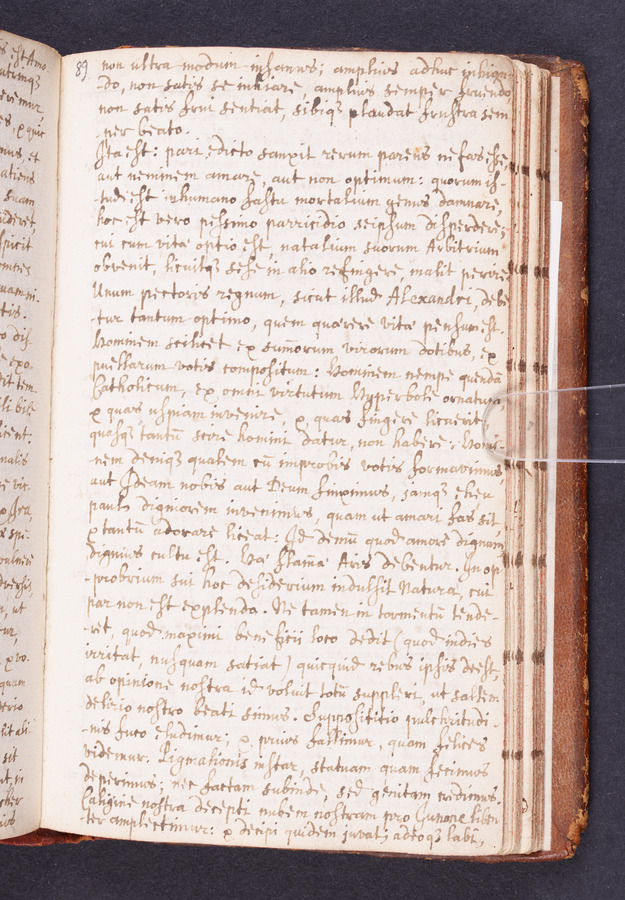 89
non ultra modum insanus; amplius adhuc inhian-
do, non satis se inhiare, amplius semper fruendo,
non satis frui sentiat, sibiq3 plaudat frustra sem
per beato.
Ita est: pari edicto sanxit rerum parens nefas esse
aut neminem amare, aut non optimum: quorum is-
tud est inhumano fastu mortalium genus damnare,
hoc est vero pessimo parricidio seipsum disperdere;
cui cum vitæ optio est, natalium suorum Arbitrium
obvenit, licuitq3 sese in alio refingere, malit perire
Unum pectoris regnum, sicut illud Alexandri, debe
tur tantum optimo, quem quærere vitæ pensum est.
Hominem scilicet ex summorum virorum dotibus, ex
puellarum votis compositum: Hominem nempe quendā
Catholicum, ex omni virtutum Hyperbole ornatum
& quas uspiam invenire, & quas fingere licuerit
quasq3 tantū scire homini datur, non habere: Homi-
nem deniq3 qualem cū improbis votis formavimus,
aut Ideam nobis aut Deum finximus, eheu
paulo digniorem invenimus, quam ut amari fas sit,
& tantū adorare liceat: Id demū quod amore dignum
dignius cultu est. Hæ flamæ Aris debentur. In op-
probrium sui hoc desiderium indulsit Natura, cui
par non est explendo. Ne tamen in tormentū tende-
ret, quod maximi beneficii loco dedit (quod indies
irritat, nusquam satiat) quicquid rebus ipsis deest,
ab opinione nostra id voluit totū suppleri ut saltem
delirio nostro beati simus. Supposititio pulchritudi-
nis fuco eludimur; & prius fallimur, quam felices
videmur. Pigmalionis instar, statuam quam fecimus
deperimus; nec factam subinde, sed genitam credimus.
Caligine nostra decepti nubem nostram pro Junone liben
ter amplectimur: & decipi quidem juvat; adeoq3 labi,